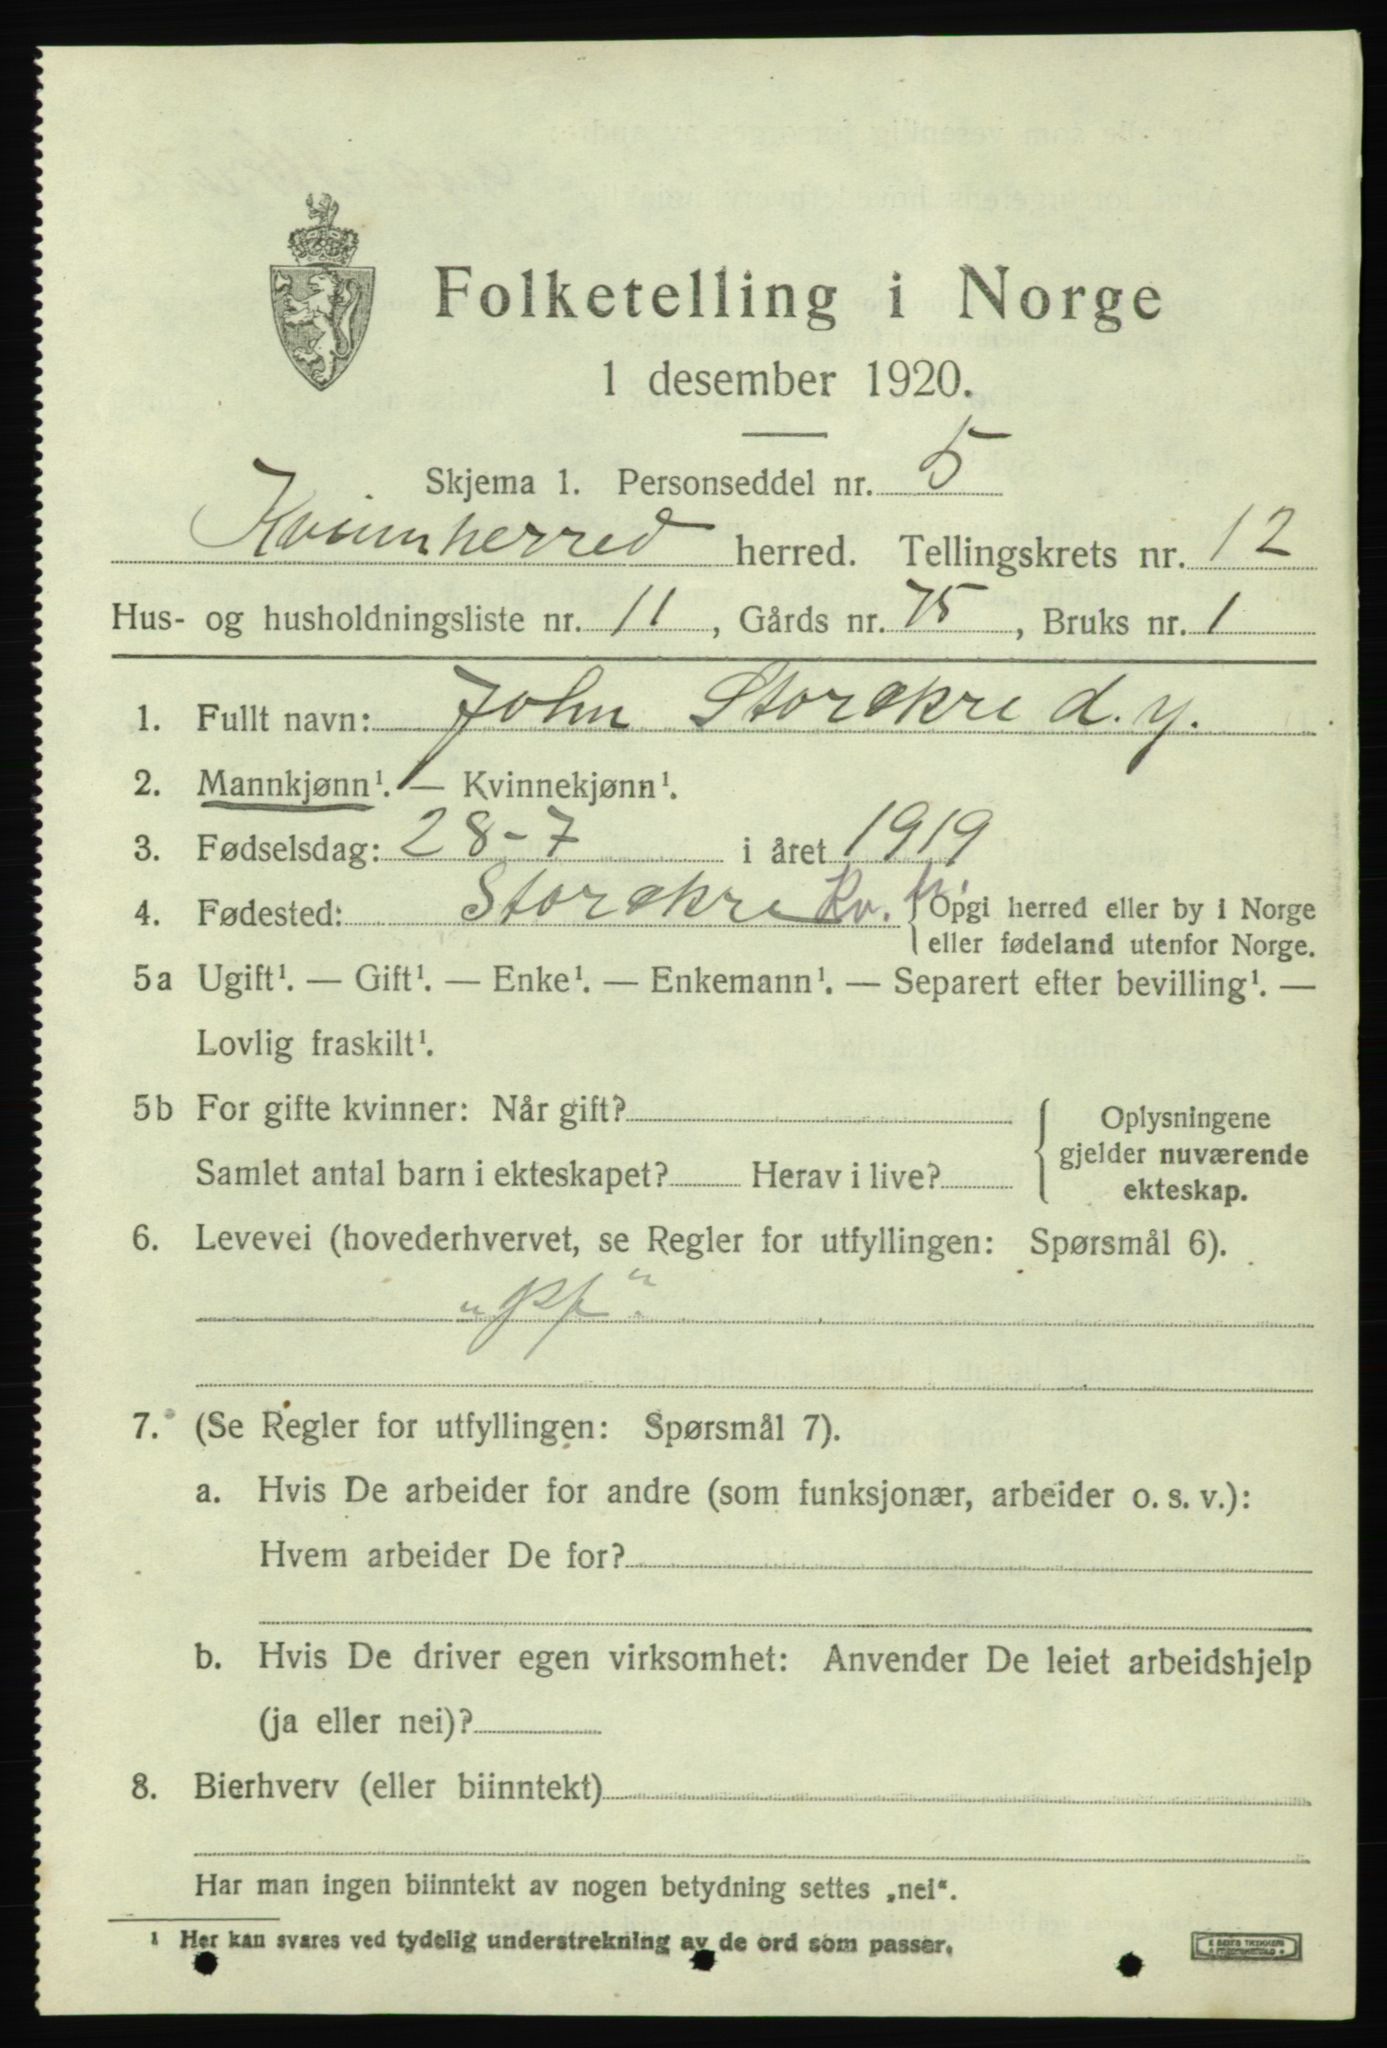 Folketelling i Norge
1 desember 1920.
Skjema 1. Personseddel nr. 5
Kvinnherred herred. Tellingskrets nr. 12
Hus- og husholdningsliste nr. 11, Gårds nr. 75, Bruks nr. 1
1. Fullt navn: John Storakre d.y.
2. Mannkjønn¹. — Kvinnekjønn¹.
3. Fødselsdag: 28-7 i året 1919
4. Fødested: Storakre Kv. h. { Opgi herred eller by i Norge
eller fødeland utenfor Norge.
5a Ugift¹. — Gift¹. — Enke¹. — Enkemann¹. — Separert efter bevilling¹. —
Lovlig fraskilt¹.
5b For gifte kvinner: Når gift?
Samlet antal barn i ekteskapet? Herav i live?
Oplysningene
gjelder nuværende
ekteskap.
6. Levevei (hovederhvervet, se Regler for utfyllingen: Spørsmål 6).
7. (Se Regler for utfyllingen: Spørsmål 7).
a. Hvis De arbeider for andre (som funksjonær, arbeider o. s. v.):
Hvem arbeider De for?
b. Hvis De driver egen virksomhet: Anvender De leiet arbeidshjelp
(ja eller nei)?
8. Bierhverv (eller biinntekt)
Har man ingen biinntekt av nogen betydning settes „nei“.
1 Her kan svares ved tydelig understrekning av de ord som passer.